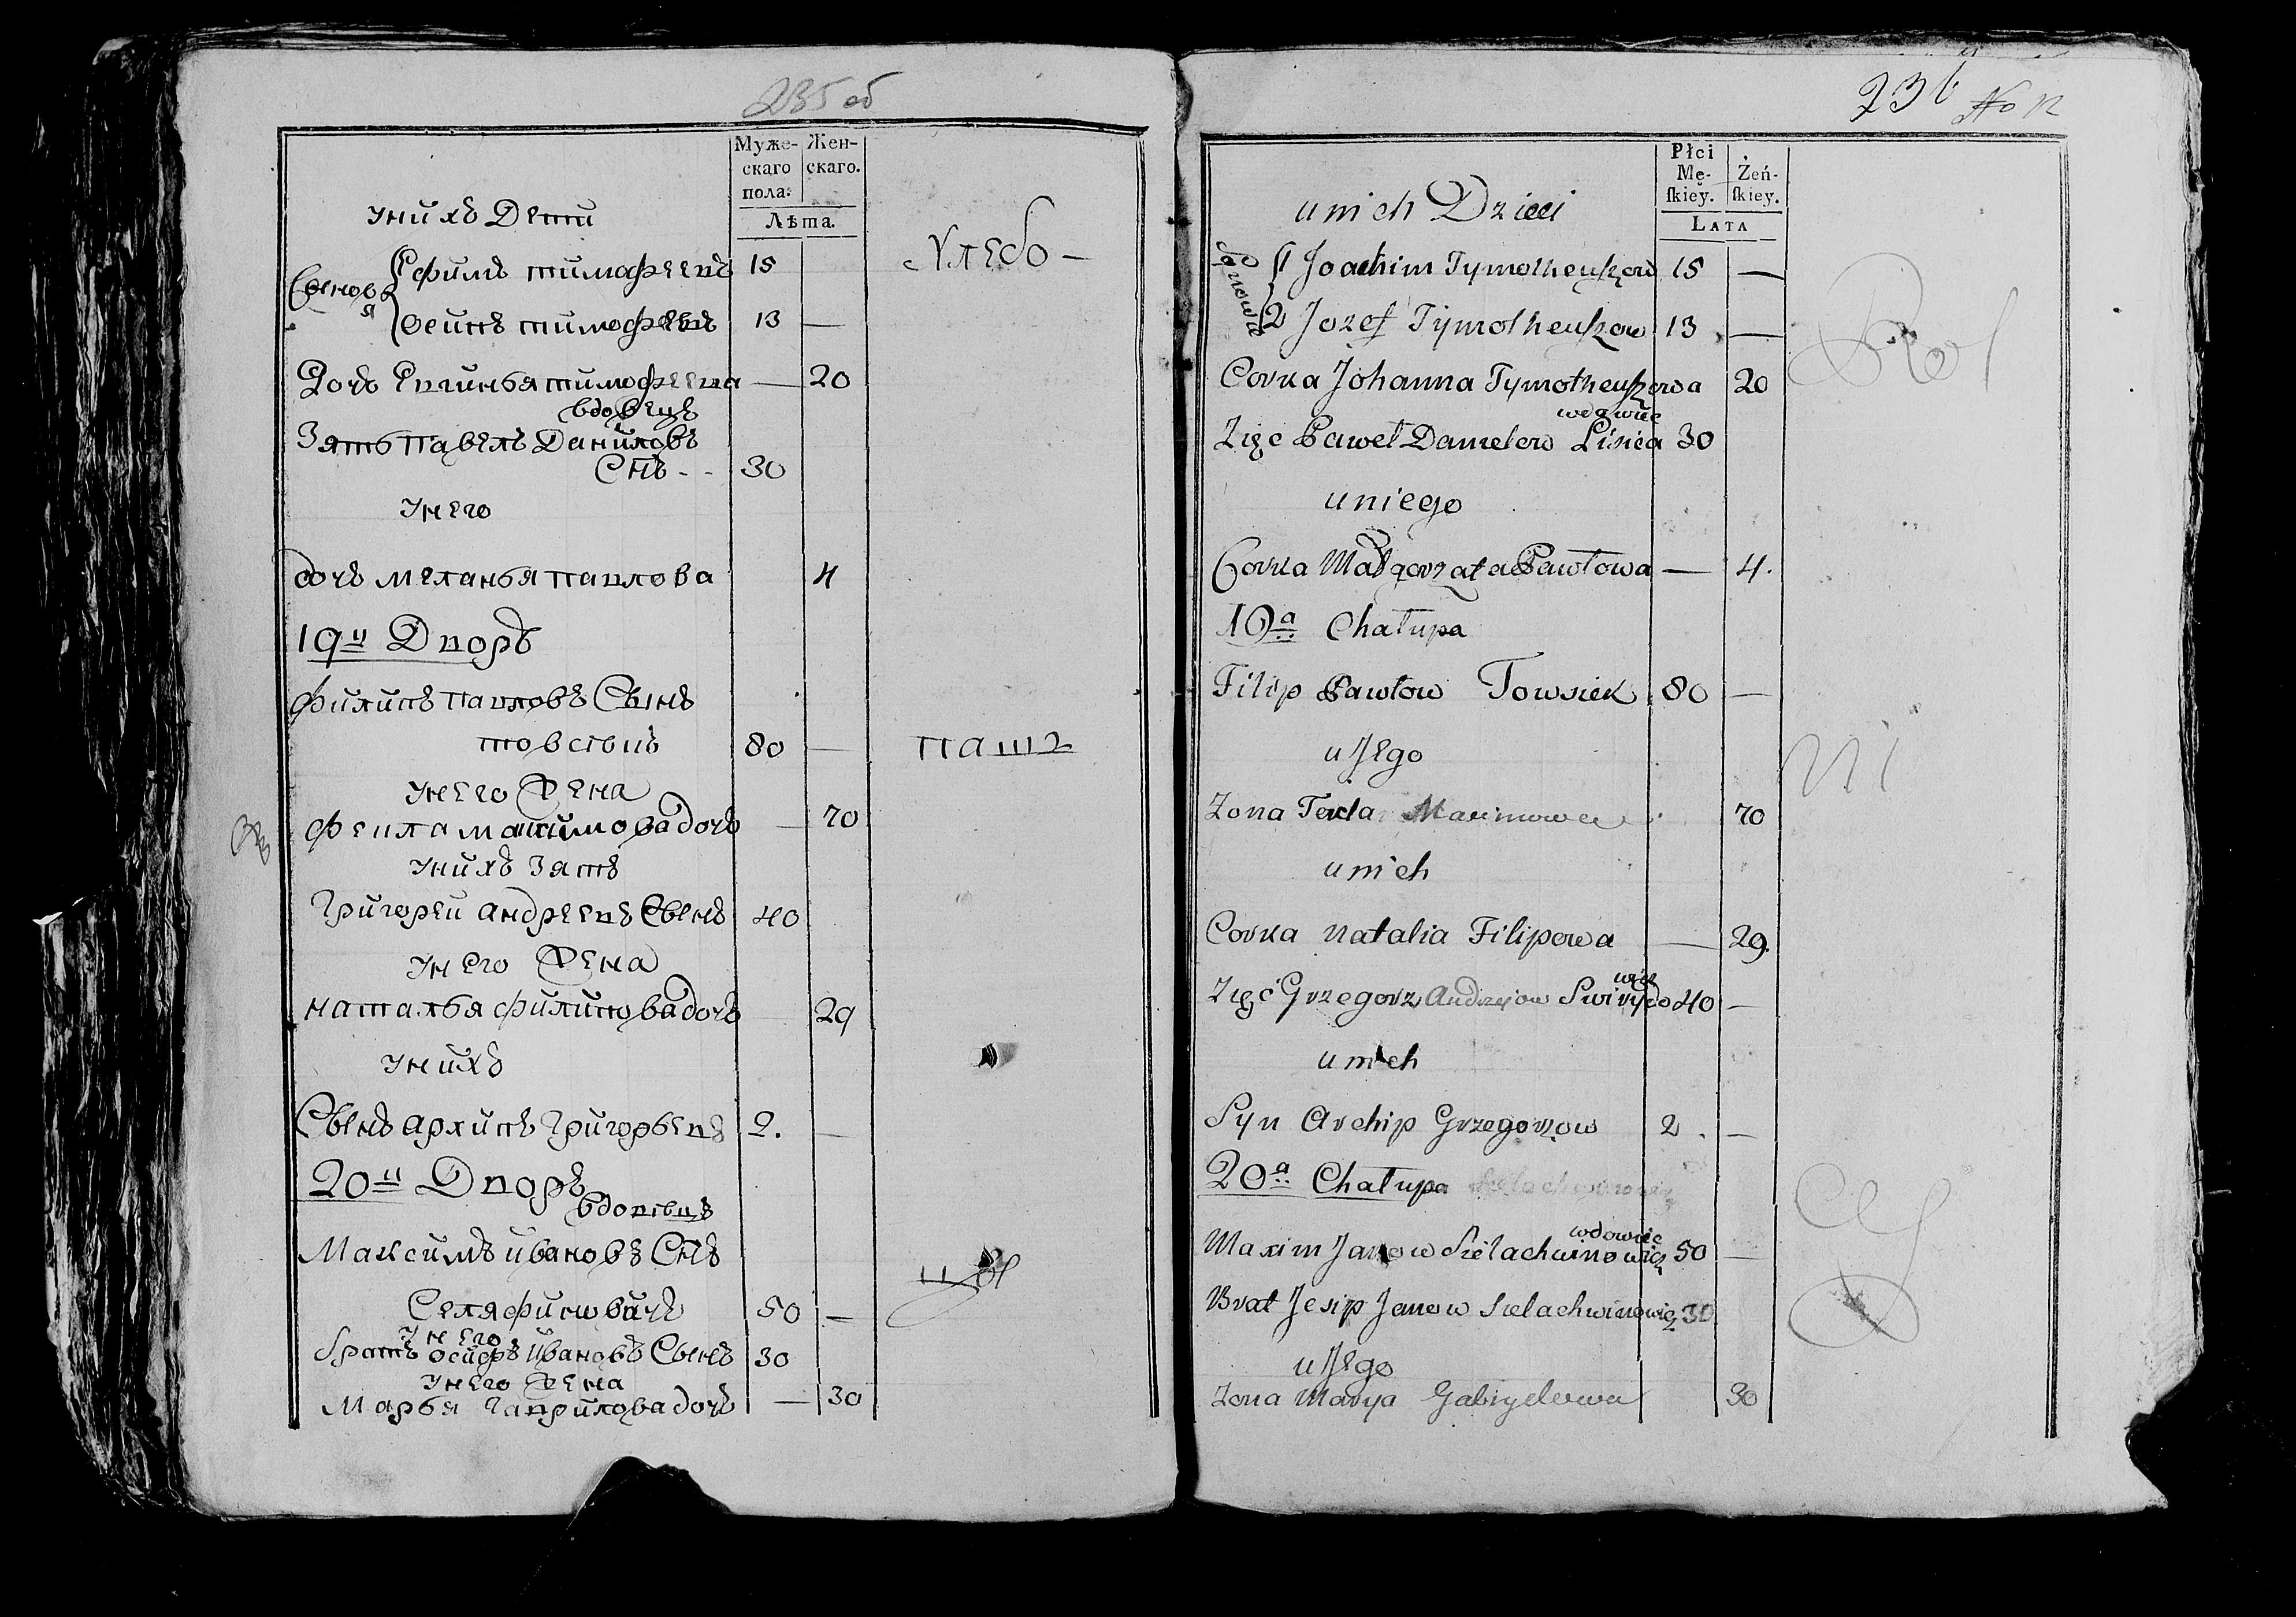 235 об
Муже-
скаго
пола:
Жен-
скаго.
Лѣта.
унихъ Дети
Сынов
я
Ефимъ тимофеевъ 15
Осипъ тимофеевъ 13 —
Дочь тимофеева — 20
вдовецъ
Зять Павелъ Даниловъ
Снъ - - 30
Унего
дочь меланья павлова 4
19й Дворъ
филипъ павловъ Сынъ
80 —
унего Жена
фекла максимова дочь — 70
унихъ Зять
Григорей андреевъ Сынъ 40
унего Жена
наталья филипова дочь 29
унихъ
Сынъ архипъ григорьевъ 2. —
20й Дворъ
вдовецъ
Максимъ ивановъ Снъ
Селяфиновичъ 50 —
унего
братъ осифъ ивановъ Сынъ 30
унего Жена
Марья гаврилова дочь — 30
236 No 12
Płci
Mę-
ſkiey.
Żeń-
ſkiey.
LATA
unich Dzieci
Synowie
1 Joachim Tymotheuszow 15 —
2 Jozef Tymotheuszow 13 —
Corka Johanna Tymotheuszowa 20
wdowiec
Zięc Paweł Danielow Lisica 30
uniego
Corka Małgorzata Pawłowa — 4.
19a Chałupa
Filip Pawłow Towsiek 80 —
u Jego
Zona Tekla Maximowa 70
unich
Corka Natalia Filipowa — 29.
Zięć Grzegorz Andrzejow 40 —
unich
Syn Archip Grzegorzow 2. —
20a Chałupa
wdowiec
Maxim Janow Szelachwinowicz 50 —
Brat Jesip Janow Szelachwinowicz 30
u Jego
Zona Marya Gabryelowa 30